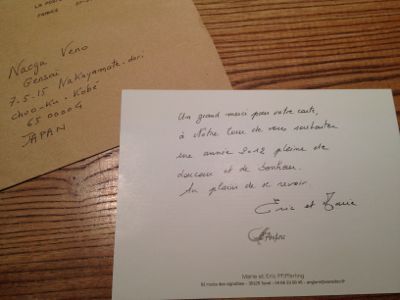 LA POSTE
FRANCE
Naoya Veno
Gensai
7-5-15 Nakayamate-dori
Chuo-Ku. Kobé
65 00004
JAPAN
Un grand merci pour votre carte,
à Notre tour de vous souhaiter
une année 2012 pleine de
douceur et de bonheur.
Au plaisir de se revoir.
Eric et Marie
L'Anglore
Marie et Eric PFifferling